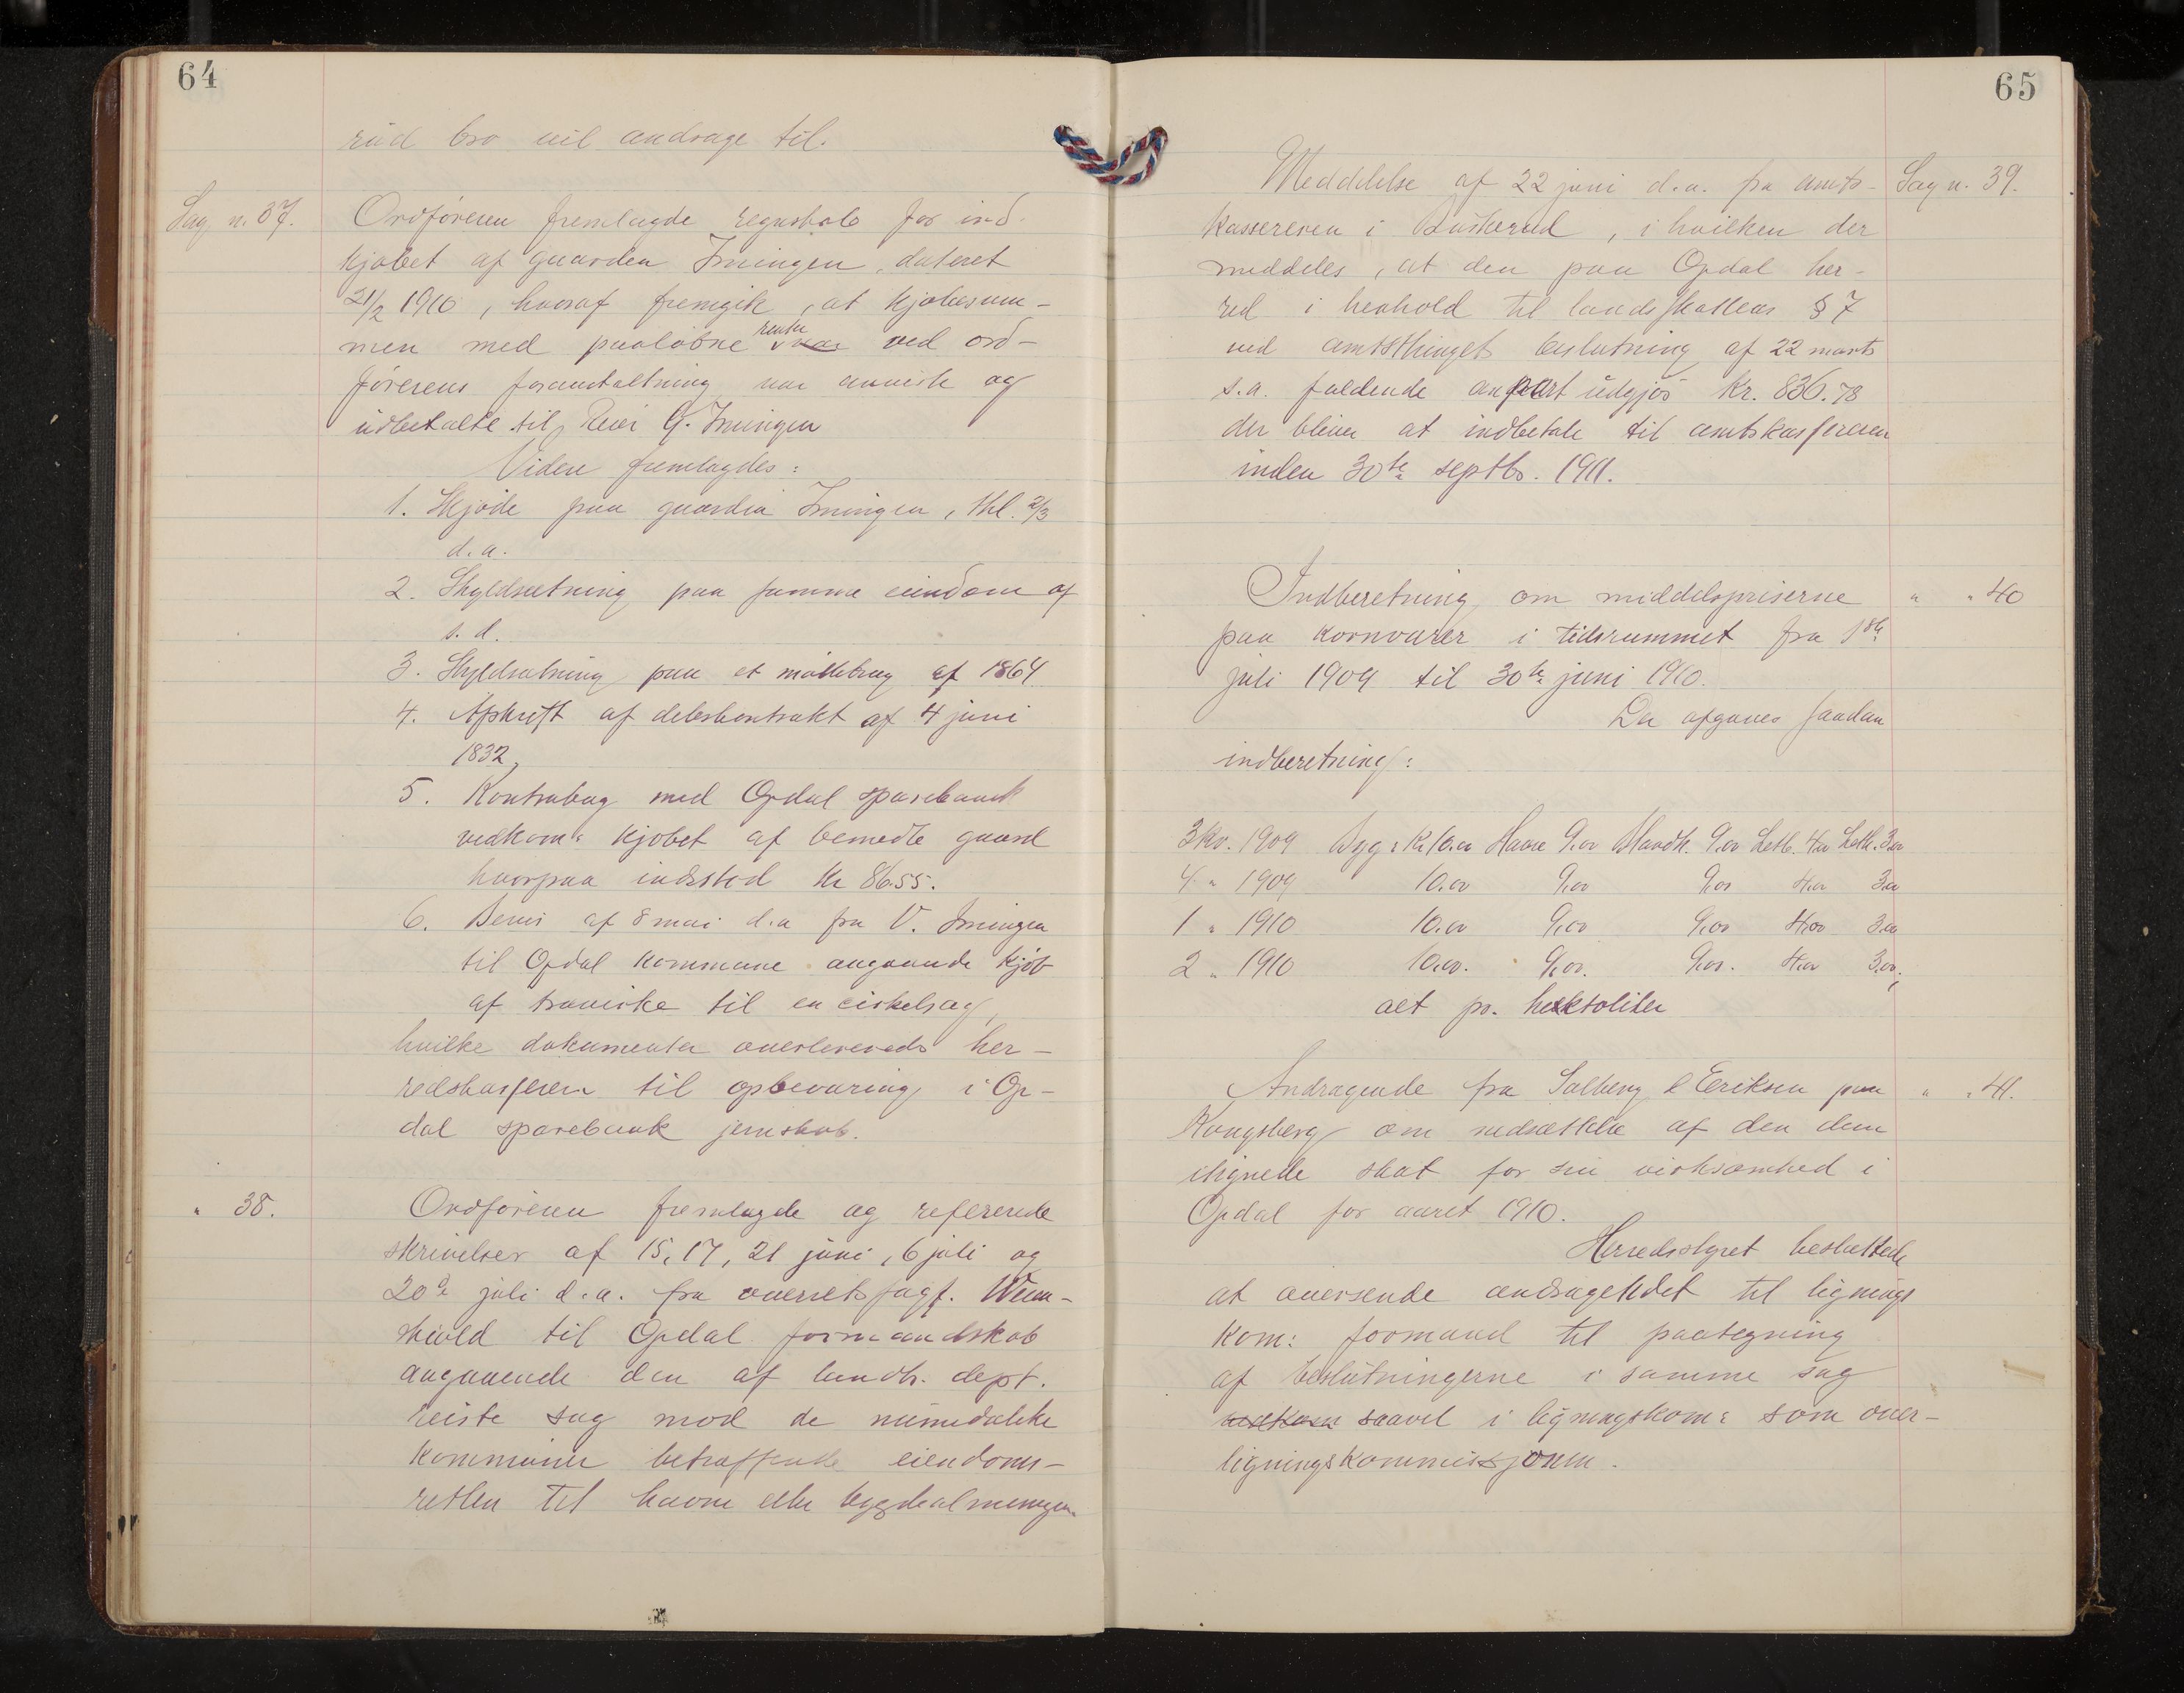 64
rud bro vil andrage til.
Sag n. 37.
Ordføreren fremlagde regnskab for ind-
kjøbet af gaarden Imingen, dateret
21/2 1910, hvoraf fremgik, at kjøbesum-
men med paaløbne renter ved ord-
førerens foranstaltning var anvist og
udbetalte til G. Imingen
Videre fremlagdes:
1. Skjøde paa gaarden Imingen, thl. 2/3
d.a.
2. Skyldsetning paa samme eiendom af
s. d.
3. Skyldsetning paa et møllebrug af 1864
4. Afskrift af deleskontrakt af 4 juni
1832,
5. Kontrabog med Opdal sparebank
vedkom: kjøbet af bemeldte gaard
hvorpaa indestod Kr 8655.
6. Bevis af 8 mai d.a fra V. Imingen
til Opdal kommune angaaende kjøb
af travirke til en cirkelsag,
hvilke dokumenter overleveredes her-
redskasseren til opbevaring i Op-
dal sparebank jernskab.
" 38.
Ordføreren fremlagde og refererede
skrivelser af 15, 17, 21 juni, 6 juli og
20de juli d.a. fra overretssagf.
til Opdal formandskab
angaaende den af landb. dept.
reiste sag mod de numedalske
kommuner betræffende eiendoms-
retten til havne eller bygdealmeninger
65
Sag n. 39.
Meddelelse af 22 juni d.a. fra amts-
kassereren i Buskerud, i hvilken der
meddeles, at den paa Opdal her-
red i henhold til landsskatlens § 7
ved amtsthingets beslutning af 22 marts
s.a. faldende anpart udgjør Kr. 836.78
der bliver at indbetale til amtskassereren
inden 30te septbr. 1911.
" " 40
Indberetning om middelspriserne
paa kornvarer i tidsrummet fra 1ste
juli 1909 til 30te juni 1910.
Der afgaves saadan
indberetning:
3 kv. 1909 Byg: Kr 10.00 Havre 9.00 Blandk. 9.00 4.00 3.00
4 " 1909 10.00 9.00 9.00 4.00 3.00
1 " 1910 10.00 9.00 9.00 4.00 3.00
2 " 1910 10.00. 9.00. 9.00. 4.00 3.00,
alt pr. hektoliter
" " 41.
Andragende fra Solberg & Eriksen paa
Kongsberg om nedsættelse af den dem
ilignede skat for sin virksomhed i
Opdal for aaret 1910.
Herredsstyret besluttede
at oversende andragendet til lignings
kom: formand til paategning
af beslutningerne i samme sag
saavel i ligningskom: som over-
ligningskommissjonen.